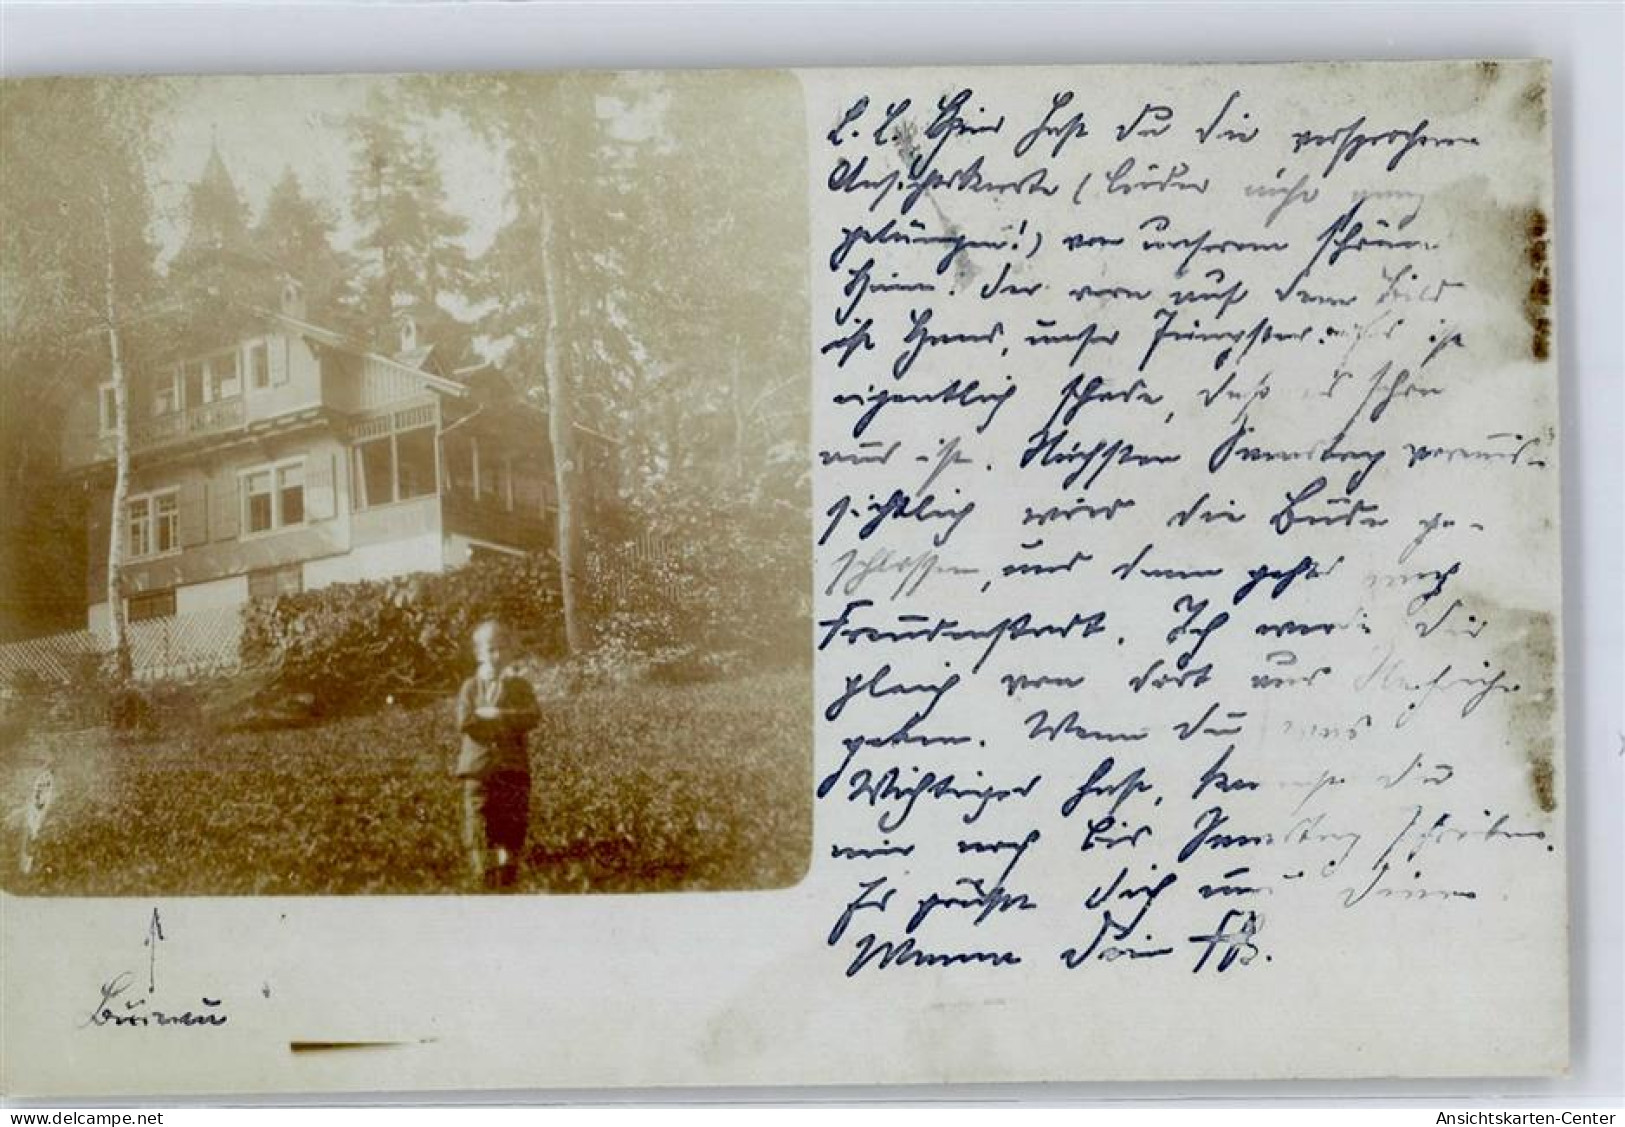 L. L. Hier hast Du die versprochene
Ansichtskarte (leider nicht ganz
gelungen!) von unserem schönen
Heim. Der vorn auf dem Bild
ist Hans, unser Jüngster. ist
eigentlich schade, daß es schon
aus ist. Nächsten Samstag voraus-
sichtlich wird die Bude ge-
schlossen, und dann gehts nach
Freudenstadt. Ich werde Dir
gleich von dort aus Nachricht
geben. Wenn Du was
Wichtiges hast, kannst Du
mir noch bis Samstag schreiben.
Es grüßt Dich und Deine
Dein
Büreau
delcampe.net
Ansichtskarten-Center